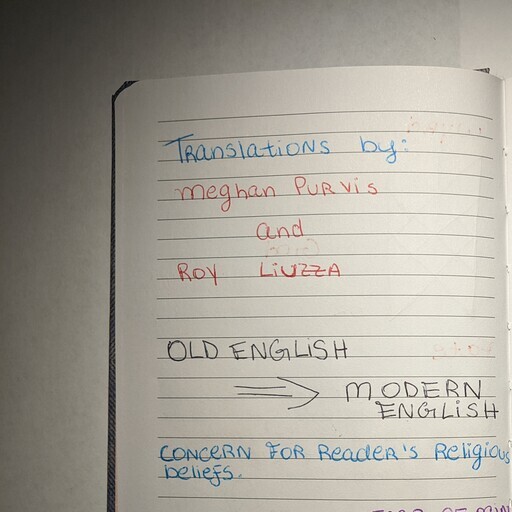 Translations by:
Meghan Purvis
and
Roy Liuzza
OLD ENGLISH
⇒ MODERN
ENGLISH
Concern for Reader's Religious
beliefs.